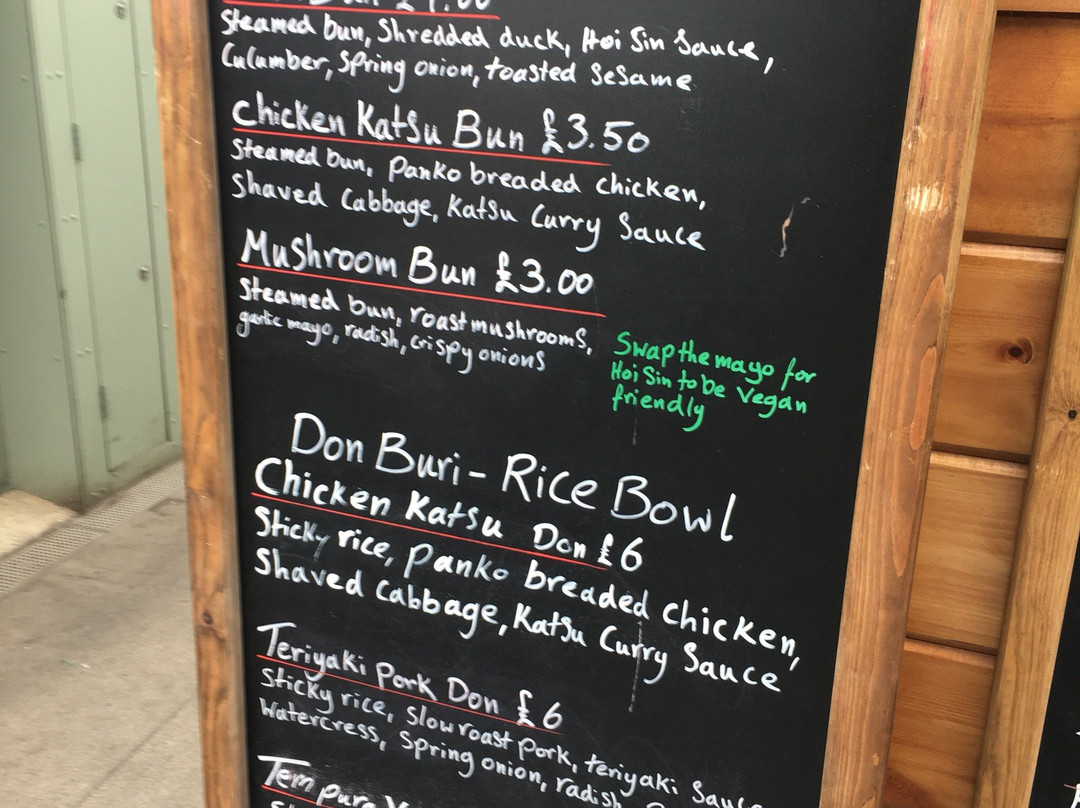 Steamed bun, Shredded duck, Hoi Sin Sauce,
Cucumber, Spring onion, toasted Sesame
Chicken Katsu Bun £3.50
Steamed bun, Panko breaded chicken,
Shaved Cabbage, Katsu Curry Sauce
Mushroom Bun £3.00
Steamed bun, roast mushrooms,
garlic mayo, radish, crispy onions
Swap the mayo for
Hoi Sin to be vegan
friendly
Don Buri - Rice Bowl
Chicken Katsu Don £6
Sticky rice, Panko breaded chicken,
Shaved Cabbage, Katsu Curry Sauce
Teriyaki Pork Don £6
Sticky rice, Slow roast pork, teriyaki Sauce
Watercress, Spring onion, radish
Tempura